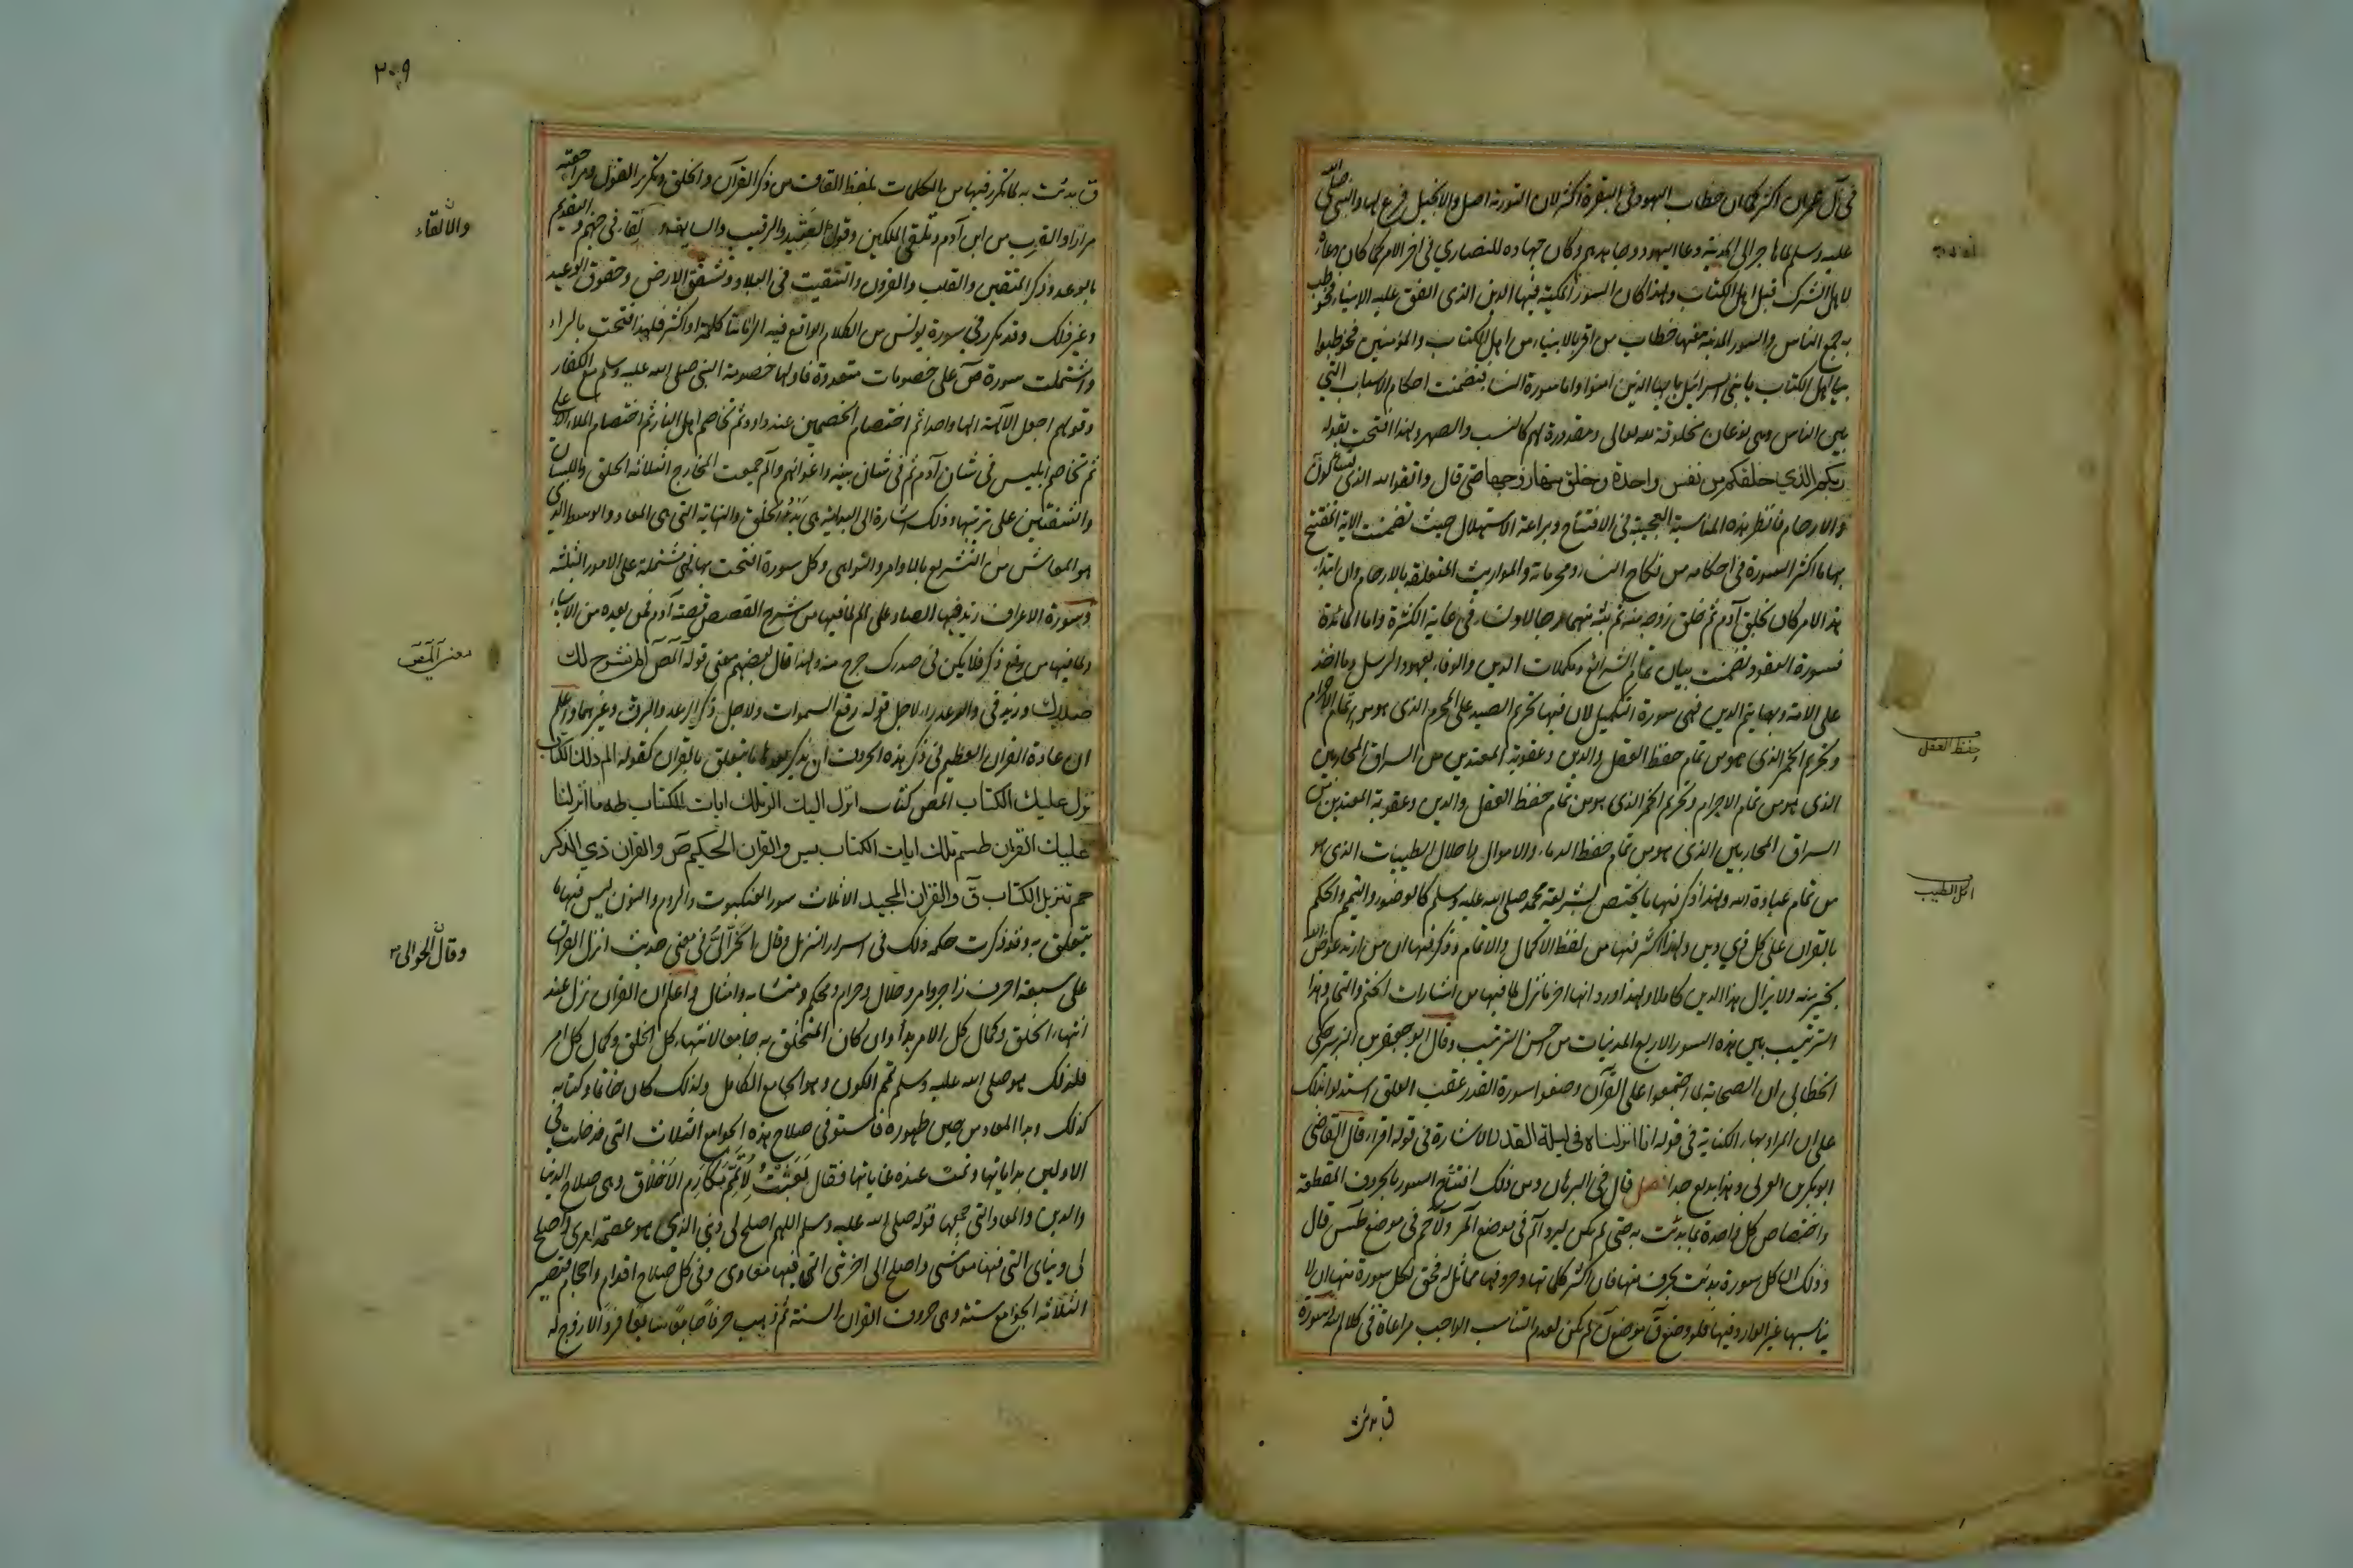 في آل عمران اكثر كما ان خطاب اليهود في البقرة اكثر لان التورية اصل والانجيل فرع لها والنبي صلى الله
عليه وسلم لما هاجر الى المدينة دعا اليهود وجاهدهم وكان جهاده للنصاري في اخر الامر كما كان دعاؤه
لاهل الشرك قبل اهل الكتاب ولهذا كان السور المكية فيها الدين الذي اتفق عليه الانبياء فخوطب
به جميع الناس والسور المدنية فيها خطاب من اقر بالانبياء من اهل الكتاب والمؤمنين فخوطبوا
بيا اهل الكتاب يا بني اسرائيل يا ايها الذين امنوا واما سورة النساء فتضمنت احكام الاسباب التي
بين الناس وهي نوعان مخلوقة لله تعالى ومقدورة لهم كالنسب والصهر ولهذا افتتحت بقوله
ربكم الذي خلقكم من نفس واحدة وخلق منها زوجها حتى قال واتقوا الله الذي تساءلون
به والارحام فانظر هذه المناسبة العجيبة في الافتتاح وبراعة الاستهلال حيث تضمنت الاية المفتتح
بها ما اكثر السورة في احكامه من نكاح النساء ومحرماته والمواريث المتعلقة بالارحام وان ابتداء
هذا الامر كان بخلق آدم ثم خلق زوجه منه ثم بث منهما رجالا ونساء في غاية الكثرة واما المائدة
فسورة العقود تضمنت بيان تمام الشرائع ومكملات الدين والوفاء بعهود الرسل وما اخذ
على الامة وبها يتم الدين فهي سورة التكميل لان فيها تحريم الصيد على المحرم الذي هو من تمام الاحرام
وتحريم الخمر الذي هو من تمام حفظ العقل والدين وعقوبة المعتدين من السراق المحاربين
الذي هو من تمام الاحرام وتحريم الخمر الذي هو من تمام حفظ العقل والدين وعقوبة المعتدين من
السراق المحاربين الذي هو من تمام حفظ الدماء والاموال واحلال الطيبات الذي هو
من تمام عبادة الله ولهذا ذكر فيها ما يختص بشريعة محمد صلى الله عليه وسلم كالوضوء والتيمم والحكم
بالقران على كل ذي دين ولهذا اكثر فيها من لفظ الاكمال والاتمام وذكر فيها ان من ارتد عوض الله
بخير منه ولا يزال هذا الدين كاملا ولهذا ورد انها اخر ما نزل لما فيها من اشارات الختم والتمام وهذا
الترتيب بين هذه السور الاربع المدنيات من احسن الترتيب وقال ابو جعفر بن الزبير حكى
الخطابي ان الصحابة لما اجتمعوا على القرآن وضعوا سورة القدر عقب العلق استدلوا بذلك
على ان المراد بهاء الكناية في قوله انا انزلناه في ليلة القدر الاشارة في قوله اقرأ قال القاضي
ابو بكر بن العربي وهذا بديع جدا فصل قال في البرهان ومن ذلك افتتاح السور بالحروف المقطعة
واختصاص كل واحدة بما بدئت به حتى لم يكن ليرد الم في موضع الر ولا حم في موضع طس قال
وذلك ان كل سورة بدئت بحرف منها فان اكثر كلماتها وحروفها مماثل له فحق لكل سورة منها ان لا
يناسبها غير الوارد فيها فلو وضع ق موضع ن لم يكن لعدم التناسب الواجب مراعاة في كلام الله وسورة
ق بدئت
حفظ العقل
اكل الطيب
٣٠٩
ق بدئت به لما تكرر فيها من الكلمات بلفظ القاف من ذكر القرآن والخلق وتكرير القول ومراجعته
مرارا والقرب من ابن آدم وتلقي الملكين وقول العتيد والرقيب والسابق والقاء في جهنم والتقديم
بالوعد وذكر المتقين والقلب والقرون والتنقيب في البلاد وتشقق الارض وحقوق الوعيد
وغير ذلك وقد تكرر في سورة يونس من الكلام الواقع فيه الر مائتا كلمة او اكثر فلهذا افتتحت بالراء
واشتملت سورة ص على خصومات متعددة فاولها خصومة النبي صلى الله عليه وسلم مع الكفار
وقولهم اجعل الآلهة الها واحدا ثم اختصام الخصمين عند داود ثم تخاصم اهل النار ثم اختصام الملاء الاعلى
ثم تخاصم ابليس في شان آدم ثم في شان بنيه واغوائهم والم جمعت المخارج الثلاثة الحلق واللسان
والشفتين على ترتيبها وذلك اشارة الى البداية هي بدؤ الخلق والنهاية التي هي المعاد والوسط الذي
هو المعاش من التشريع بالاوامر والنواهي وكل سورة افتتحت بها فهي مشتملة على الامور الثلثة
وسورة الاعراف زيد فيها الصاد على الم لما فيها من شرح القصص قصة آدم فمن بعده من الانبياء
ولما فيها من ذكر فلا يكن في صدرك حرج منه ولهذا قال بعضهم معنى قوله المص الم نشرح لك
صدرك وزيد في الرعد راء لاجل قوله رفع السموات ولاجل ذكر الرعد والبرق وغيرهما واعلم
ان عادة القران العظيم في ذكر هذه الحروف ان يذكر بعدها ما يتعلق بالقران كقوله الم ذلك الكتاب
نزل عليك الكتاب المص كتاب انزل اليك الر تلك ايات الكتاب طه ما انزلنا
عليك القران طسم تلك ايات الكتاب يس والقران الحكيم ص والقران ذي الذكر
حم تنزيل الكتاب ق والقران المجيد الا ثلاث سور العنكبوت والروم والنون ليس فيها ما
يتعلق به وقد ذكرت حكمة ذلك في اسرار التنزيل وقال الحرالي في معنى حديث انزل القران
على سبعة احرف زاجر وامر وحلال وحرام ومحكم ومتشابه وامثال واعلم ان القران نزل عند
انتهاء الخلق وكمال كل الامر بدأ وان كان المتخلق به جامعا لانتهاء كل الخلق وكمال كل امر
فلذلك هو صلى الله عليه وسلم قثم الكون وهو الجامع الكامل ولذلك كان خاتما وكتابه
كذلك وبدا المعاد من حين ظهوره فاستوفى صلاح هذه الجوامع الثلاث التي قد خلت في
الاولين بداياتها وتمت عنده غاياتها فقال بعثت لاتمم مكارم الاخلاق وهي صلاح الدنيا
والدين والمعاد التي جمعها قوله صلى الله عليه وسلم اللهم اصلح لي ديني الذي هو عصمة امري واصلح
لي دنياي التي فيها معاشي واصلح لي اخرتي التي فيها معادي وفي كل صلاح اقدام واحجام فتصير
الثلاثة الجوامع ستة وهي حروف القران الستة ثم وهب حرفا جامعا سابعا فردا لا زوج له
والالقاء
معنى المص
وقال الحرالي